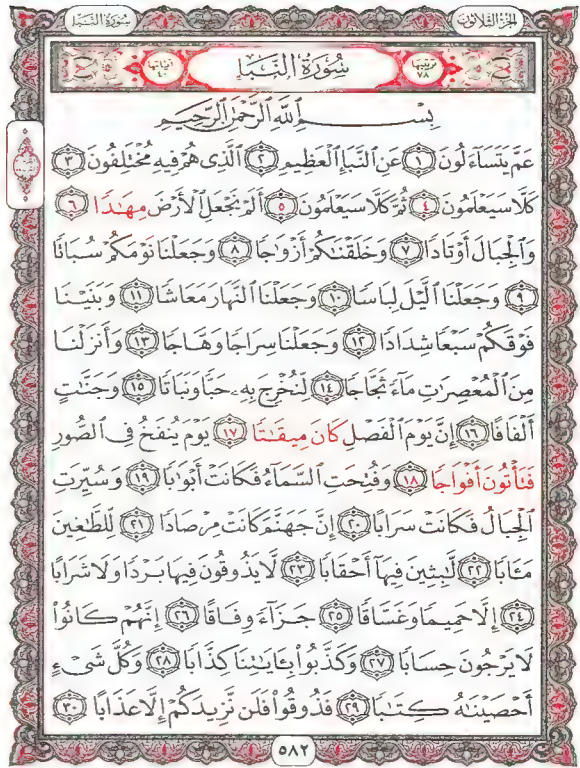 سُورَةُ النَّبَإِ
الجُزْءُ الثَّلَاثُونَ
سُورَةُ النَّبَإِ
ترتيبها ٧٨
آياتها ٤٠
بِسْمِ ٱللَّهِ ٱلرَّحْمَٰنِ ٱلرَّحِيمِ
عَمَّ يَتَسَآءَلُونَ ١ عَنِ ٱلنَّبَإِ ٱلْعَظِيمِ ٢ ٱلَّذِى هُمْ فِيهِ مُخْتَلِفُونَ ٣
كَلَّا سَيَعْلَمُونَ ٤ ثُمَّ كَلَّا سَيَعْلَمُونَ ٥ أَلَمْ نَجْعَلِ ٱلْأَرْضَ مِهَٰدًا ٦
وَٱلْجِبَالَ أَوْتَادًا ٧ وَخَلَقْنَٰكُمْ أَزْوَٰجًا ٨ وَجَعَلْنَا نَوْمَكُمْ سُبَاتًا
٩ وَجَعَلْنَا ٱلَّيْلَ لِبَاسًا ١٠ وَجَعَلْنَا ٱلنَّهَارَ مَعَاشًا ١١ وَبَنَيْنَا
فَوْقَكُمْ سَبْعًا شِدَادًا ١٢ وَجَعَلْنَا سِرَاجًا وَهَّاجًا ١٣ وَأَنزَلْنَا
مِنَ ٱلْمُعْصِرَٰتِ مَآءً ثَجَّاجًا ١٤ لِّنُخْرِجَ بِهِۦ حَبًّا وَنَبَاتًا ١٥ وَجَنَّٰتٍ
أَلْفَافًا ١٦ إِنَّ يَوْمَ ٱلْفَصْلِ كَانَ مِيقَٰتًا ١٧ يَوْمَ يُنفَخُ فِى ٱلصُّورِ
فَتَأْتُونَ أَفْوَاجًا ١٨ وَفُتِحَتِ ٱلسَّمَآءُ فَكَانَتْ أَبْوَٰبًا ١٩ وَسُيِّرَتِ
ٱلْجِبَالُ فَكَانَتْ سَرَابًا ٢٠ إِنَّ جَهَنَّمَ كَانَتْ مِرْصَادًا ٢١ لِّلطَّٰغِينَ
مَـَٔابًا ٢٢ لَّٰبِثِينَ فِيهَآ أَحْقَابًا ٢٣ لَّا يَذُوقُونَ فِيهَا بَرْدًا وَلَا شَرَابًا
٢٤ إِلَّا حَمِيمًا وَغَسَّاقًا ٢٥ جَزَآءً وِفَاقًا ٢٦ إِنَّهُمْ كَانُوا۟
لَا يَرْجُونَ حِسَابًا ٢٧ وَكَذَّبُوا۟ بِـَٔايَٰتِنَا كِذَّابًا ٢٨ وَكُلَّ شَىْءٍ
أَحْصَيْنَٰهُ كِتَٰبًا ٢٩ فَذُوقُوا۟ فَلَن نَّزِيدَكُمْ إِلَّا عَذَابًا ٣٠
٥٨٢